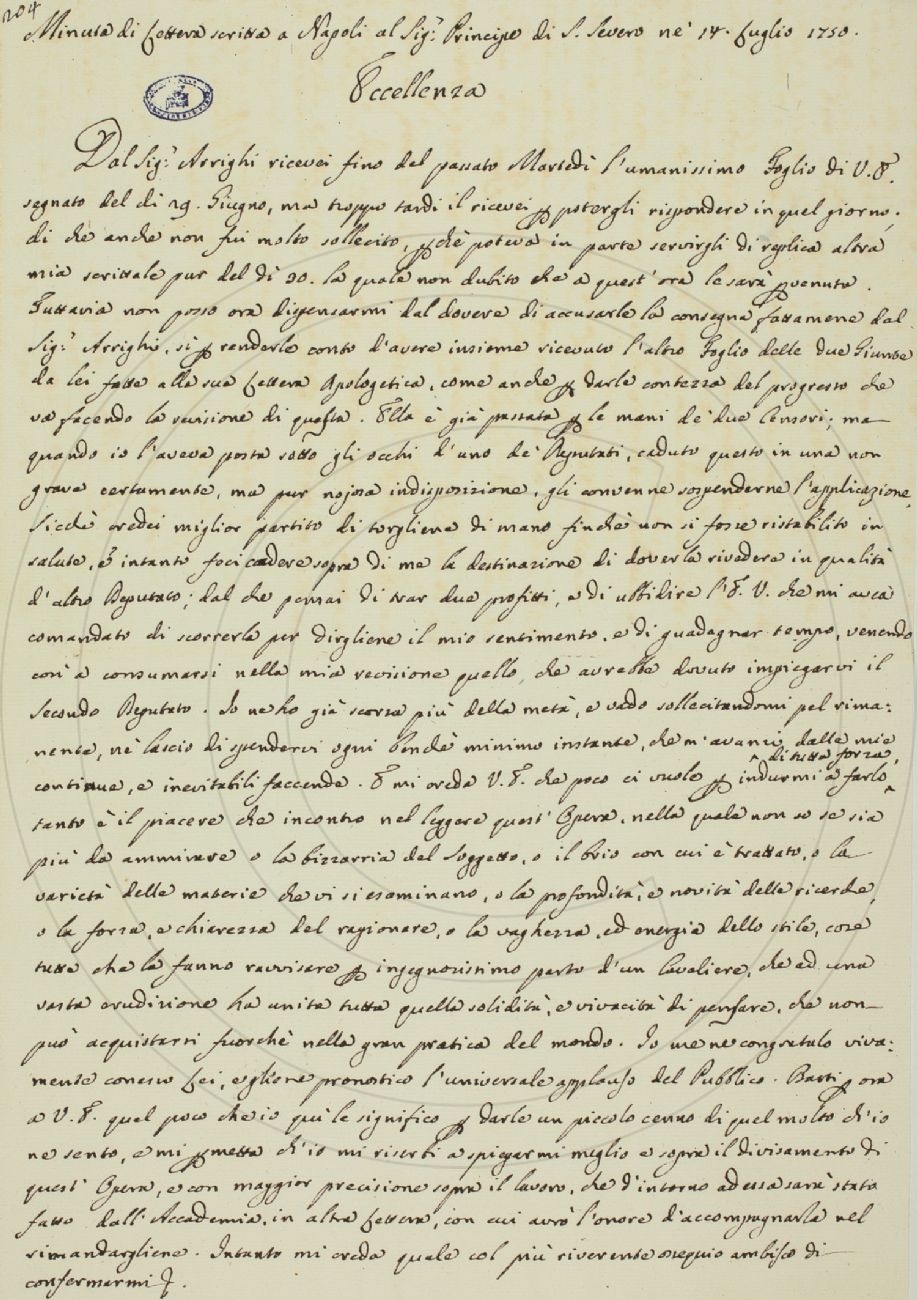 204
Minuta di Lettera scritta a Napoli al Sig.r Principe di S. Severo ne' 14. Luglio 1750.
Eccellenza
Dal Sig.r Arrighi ricevei fino del passato Martedì l'umanissimo Foglio di V. E.
segnato del di 29. Giugno, ma troppo tardi il ricevei p potergli rispondere in quel giorno;
di che anche non fui molto sollecito, pchè poteva in parte servirgli di replica altra
mia scrittale pur del dì 30. la quale non dubito che a quest'ora le sarà pvenuta.
Tuttavia non posso ora dispensarmi dal dovere di accusarle la consegna fattamene dal
Sig.r Arrighi, sì p renderle conto d'avere insieme ricevuto l'altro Foglio delle due Giunte
da lei fatte alla sua Lettera Apologetica, come anche p darle contezza del progresso che
va facendo la revisione di questa. Ella è già passata p le mani de' due Censori; ma
quando io l'aveva posta sotto gli occhi d'uno de' Deputati, caduto questo in una non
grave certamente, ma pur nojosa indisposizione, gli convenne sospenderne l'applicazione.
Sicchè credei miglior partito di torgliena di mano finchè non si fosse ristabilito in
salute, e intanto feci cadere sopra di me la destinazione di doverla rivedere in qualità
d'altro Deputato; dal che pensai di trar due profitti, e di ubbidire l'E. V. che mi avea
comandato di scorrerla per dirgliene il mio sentimento, e di guadagnar tempo, venendo
così a consumarsi nella mia revisione quello, che avrebbe dovuto impiegarvi il
Secondo Deputato. Io ne ho già scorsa più della metà, e vado sollecitandomi pel rima:
nente, nè lascio di spendervi ogni benchè minimo instante, che m'avanzi dalle mie
continue, e inevitabili faccende. E mi creda V. E. che poco ci vuole p indurmi a farlo di tutta forza,
tanto è il piacere che incontro nel leggere quest'Opera, nella quale non so se sia
più da ammirare o la bizzarria del Soggetto, o il brio con cui è trattato, o la
varietà delle materie che vi si esaminano, o la profondità, e novità delle ricerche,
o la forza, e chiarezza del ragionare, o la vaghezza, ed energia dello stile, cose
tutte che la fanno ravvisare p ingegnosissimo parto d'un Cavaliere, che ad una
vasta erudizione ha unita tutta quella solidità, e vivacità di pensare, che non
può acquistarsi fuorchè nella gran pratica del mondo. Io me ne congratulo viva:
mente con esso Lei, e gliene pronostico l'universale applauso del Pubblico. Basti p ora
a V. E. quel poco che io quì le significo p darle un piccolo cenno di quel molto ch'io
ne sento, e mi pmetta ch'io mi riserbi a spiegarmi meglio e sopra il divisamento di
quest'Opera, e con maggior precisione sopra il lavoro, che d'intorno ad essa sarà stato
fatto dall'Accademia, in altra Lettera, con cui avrò l'onore d'accompagnarla nel
rimandargliene. Intanto mi creda quale col più riverente ossequio ambisco di
confermarmi